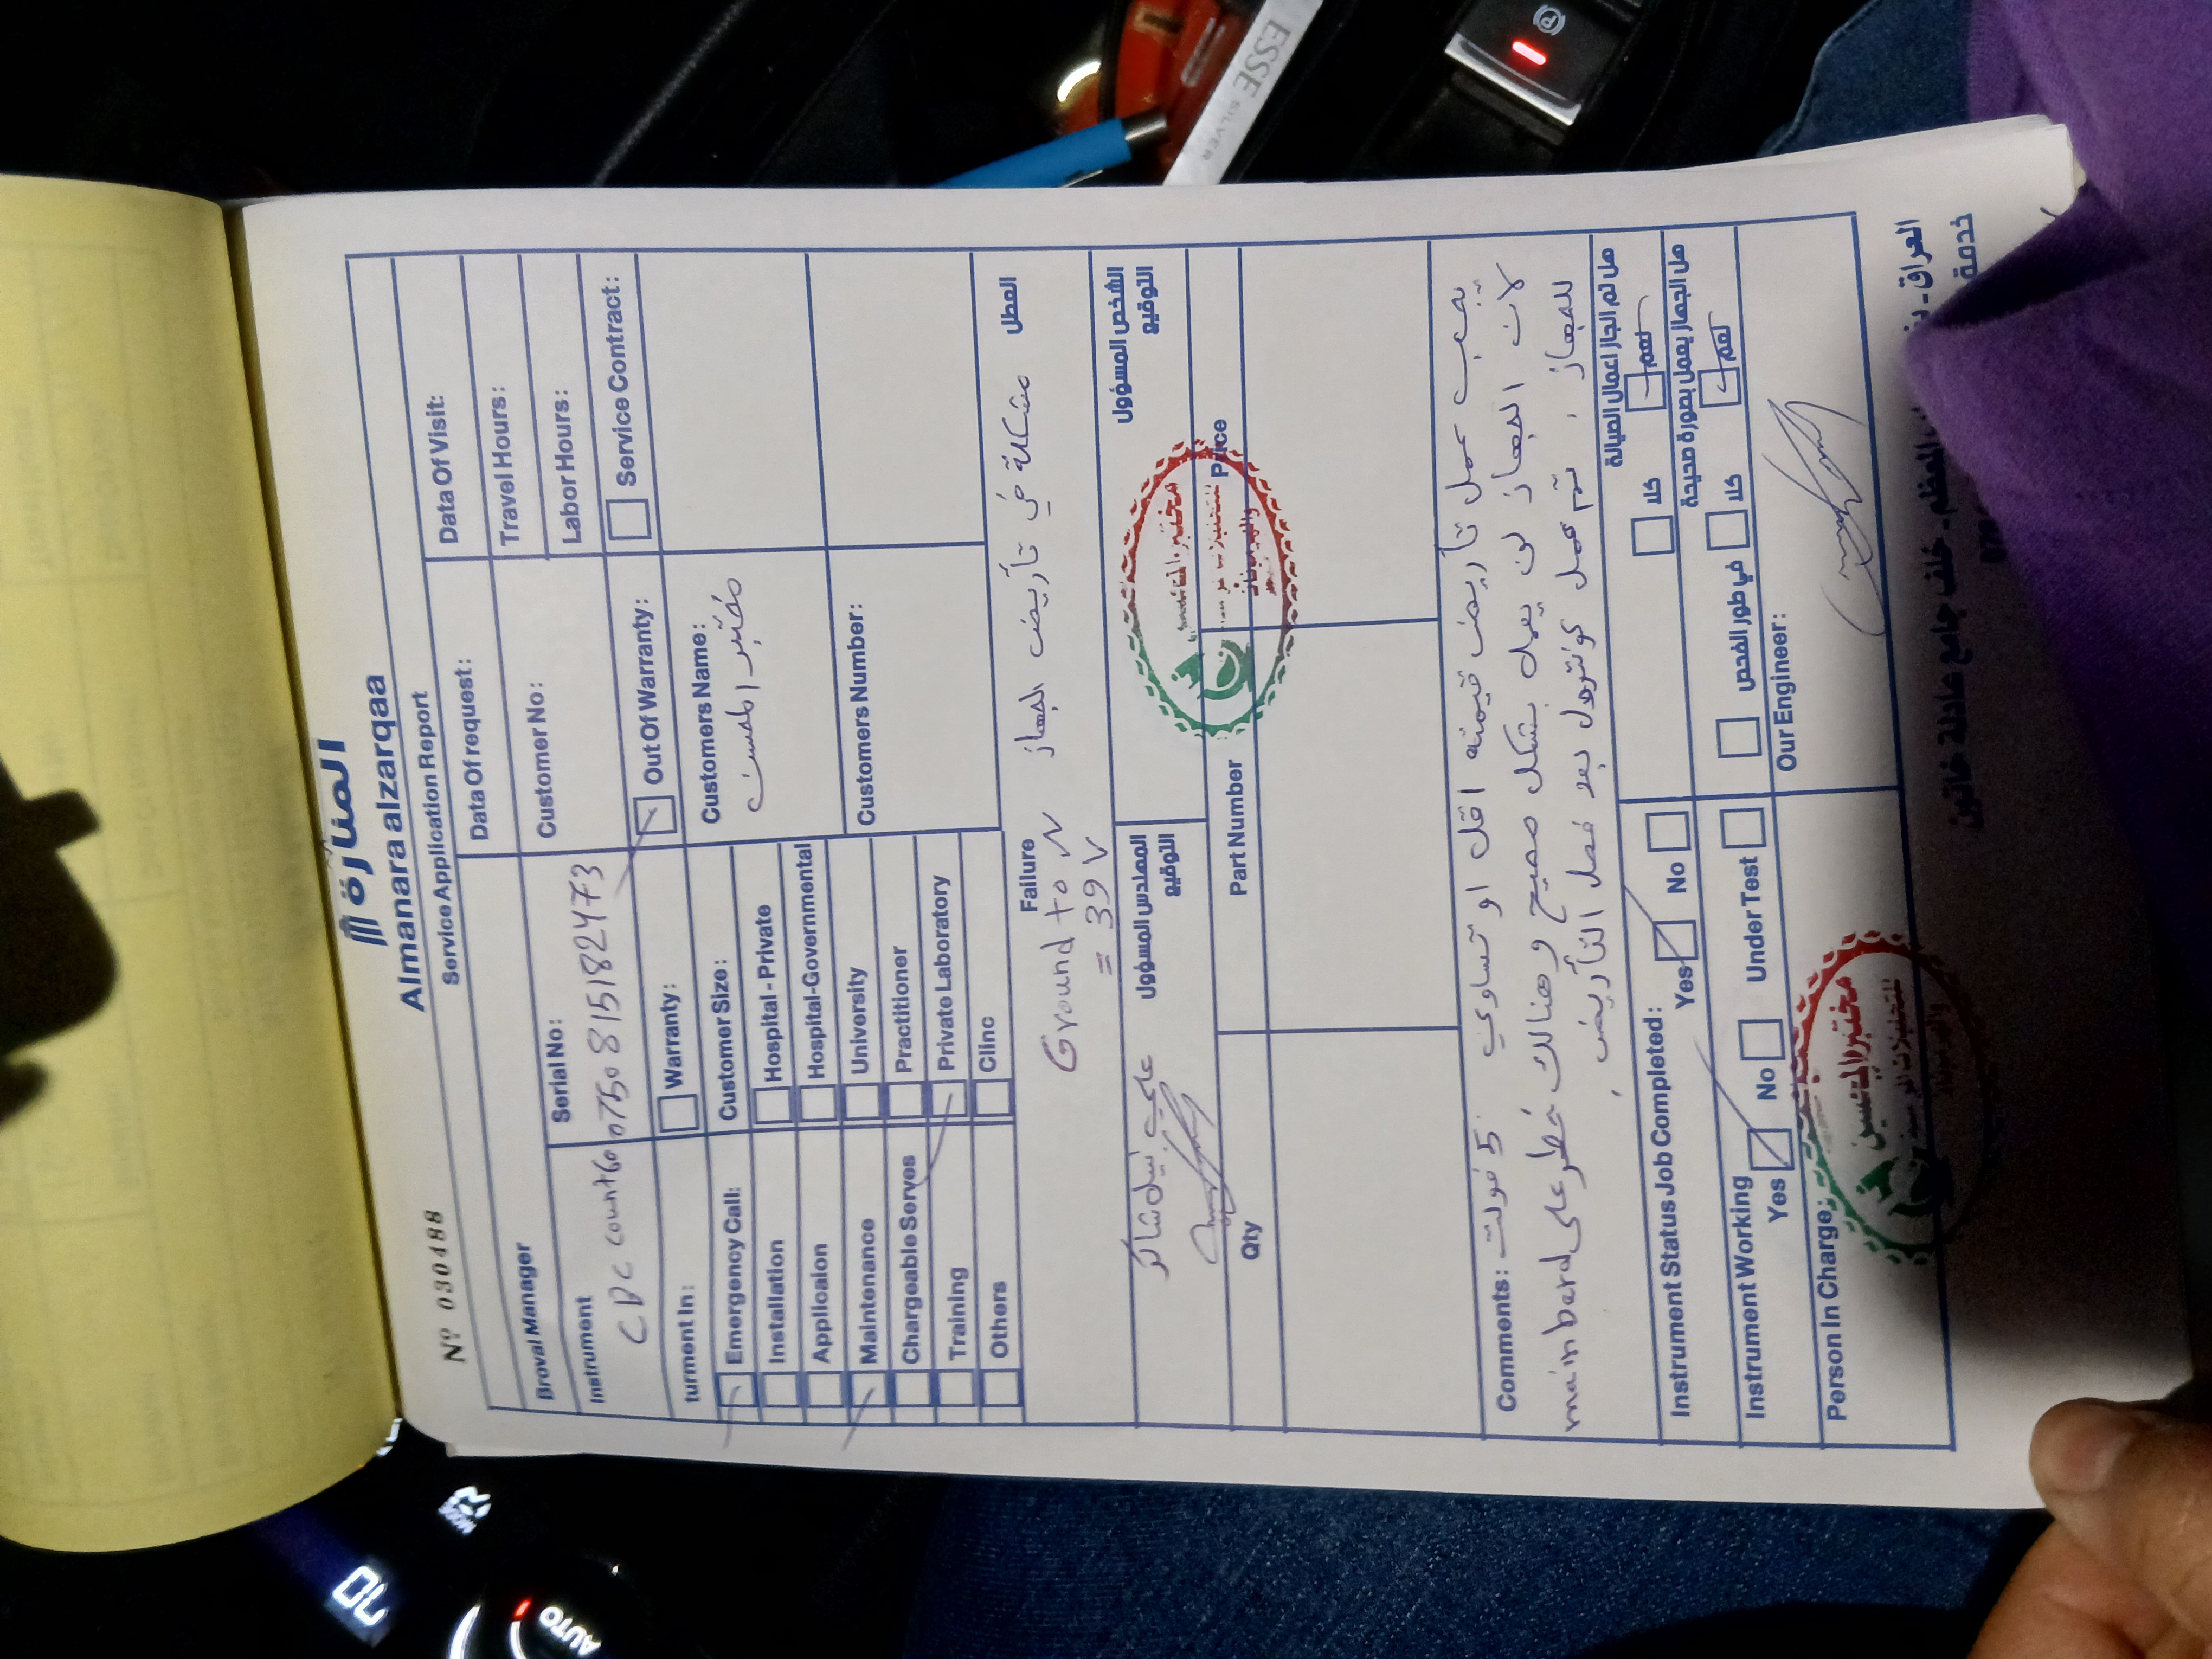 المنارة
Almanara alzarqaa
Service Application Report
Nº 030488
Data Of request:
Data Of Visit:
Broval Manager
Customer No:
Travel Hours:
Labor Hours:
Instrument
CBC count60
Serial No:
0750 8151 82473
turment In:
Warranty:
Out Of Warranty:
Service Contract:
Emergency Call:
Installation
Applicaion
Maintenance
Chargeable Serves
Training
Others
Customer Size:
Hospital - Private
Hospital-Governmental
University
Practitioner
Private Laboratory
Clinc
Customers Name:
مختبر المحسن
Customers Number:
Failure
العطل
مشكلة في تأريض الجهاز
Ground to N
= 39 V
علي نبيل شاكر
المهندس المسؤول
التوقيع
الشخص المسؤول
التوقيع
Qty
Part Number
Price
Comments:
يجب عمل تأريض قيمته اقل او تساوي 5 فولت
لان الجهاز لن يعمل بشكل صحيح وهنالك خطر على mainbord
للجهاز . تم عمل كونترول بعد فصل التأريض .
Instrument Status Job Completed:
Yes
No
هل تم انجاز اعمال الصيانة
كلا
نعم
Instrument Working
Yes
No
Under Test
هل الجهاز يعمل بصورة صحيحة
في طور الفحص
كلا
نعم
Person In Charge:
Our Engineer:
العراق -
خلف جامع عادلة خاتون
خدمة
ESSE
SILVER
AUTO